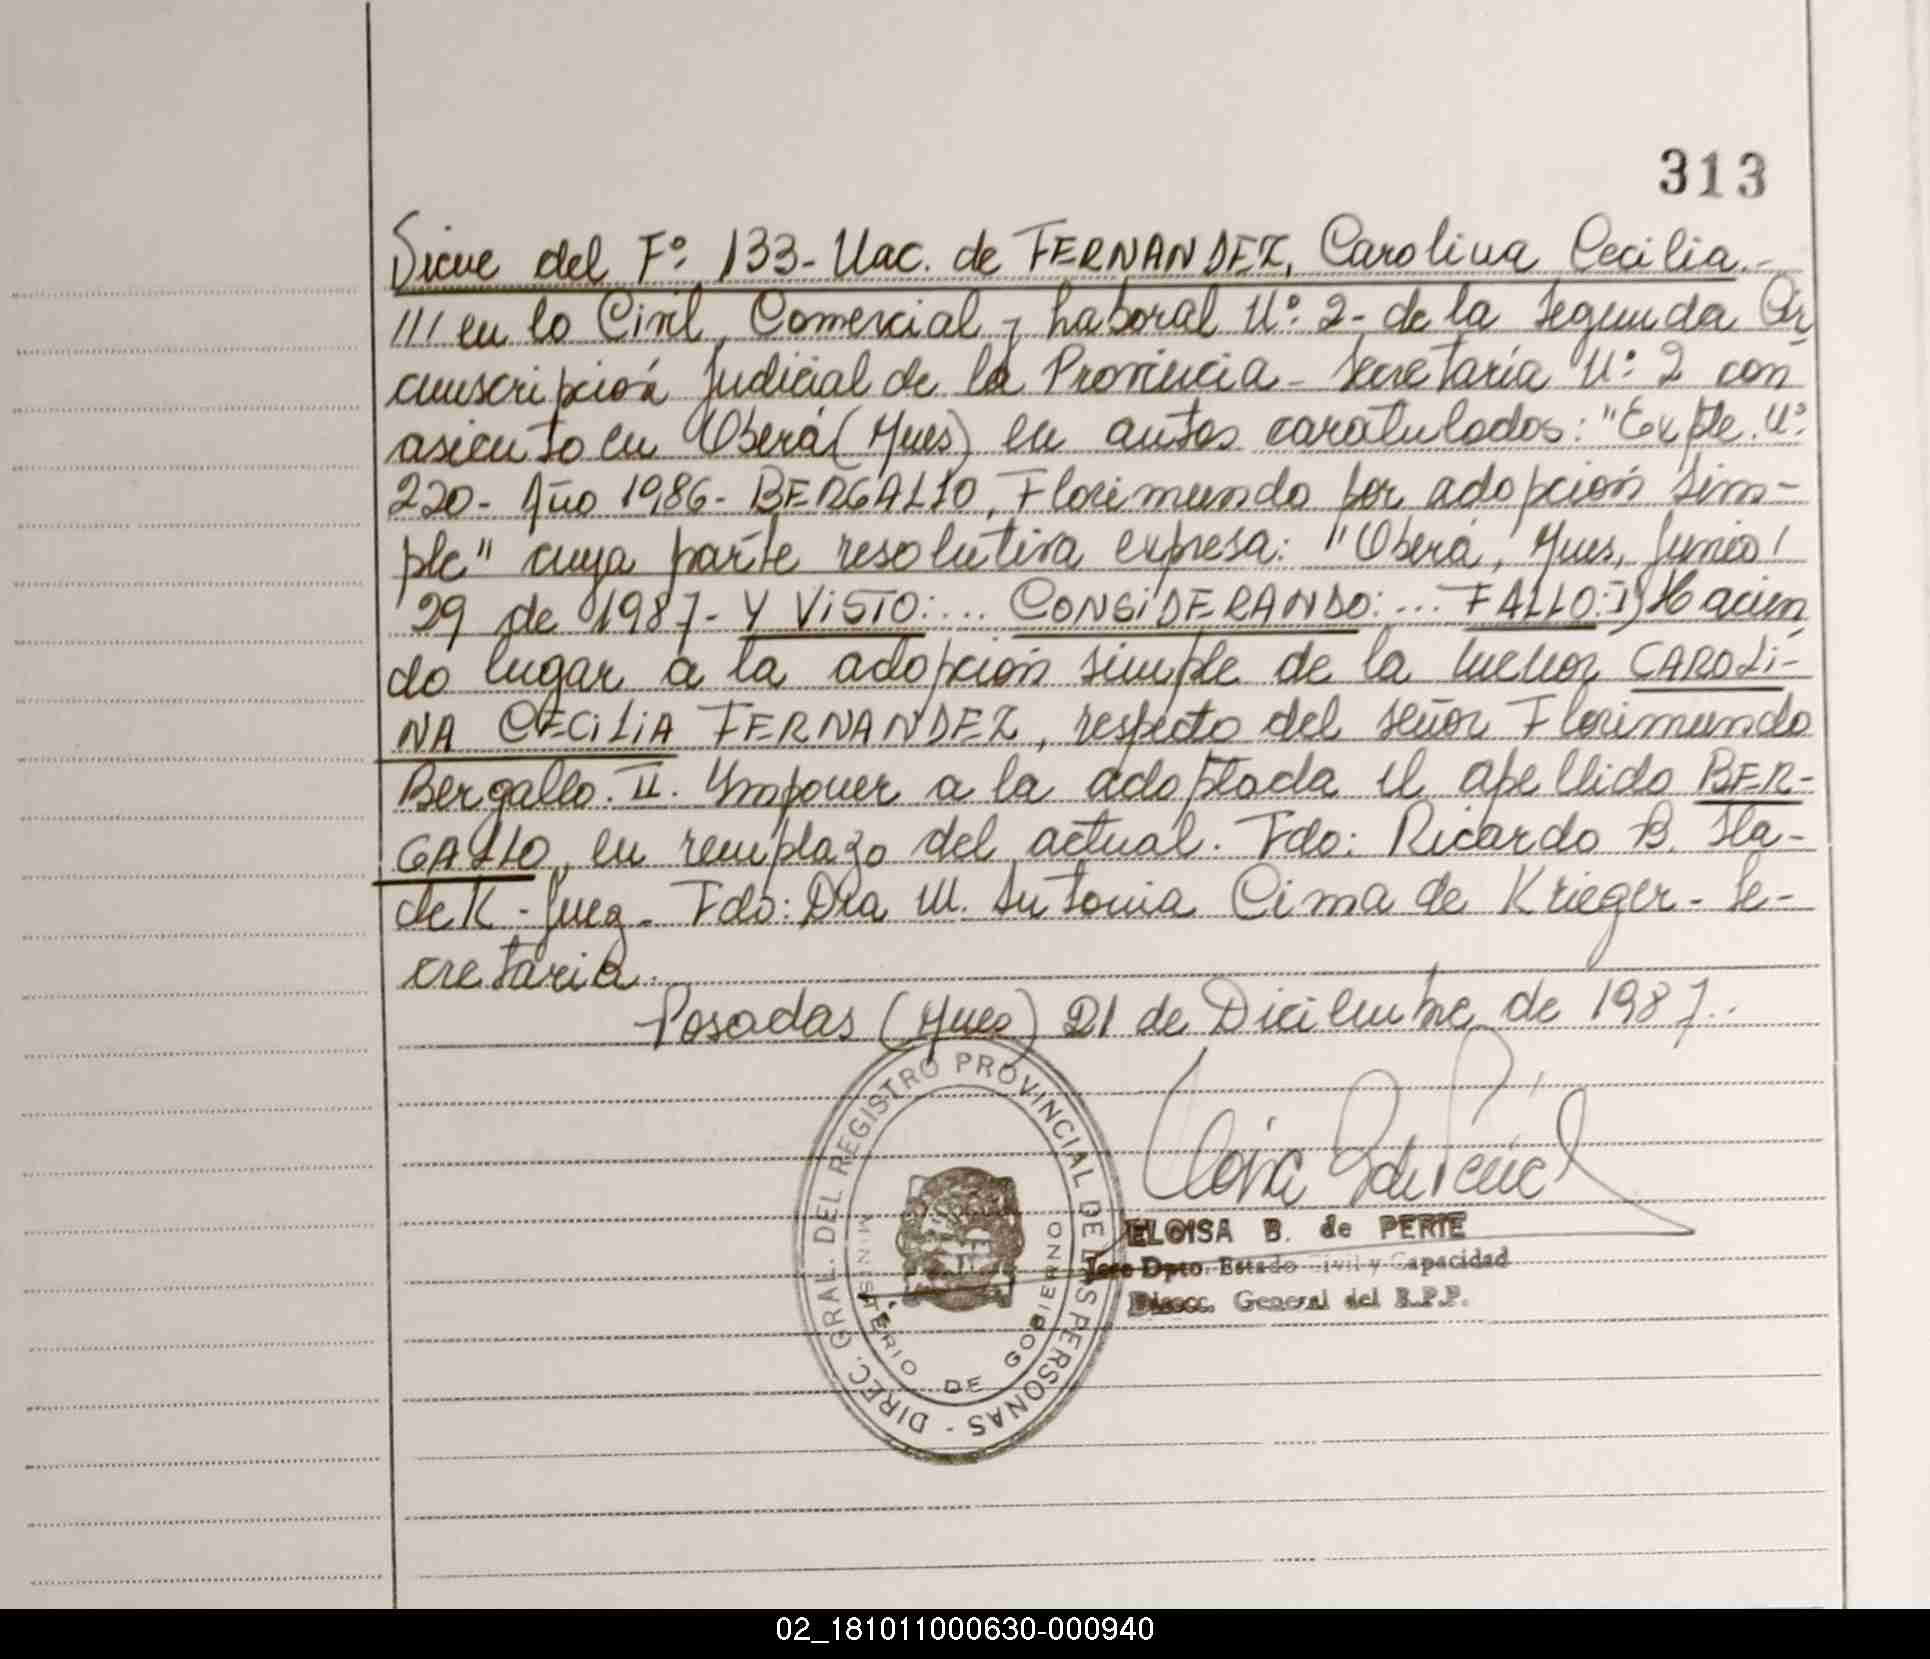 313
Sigue del Fº 133- Nac. de FERNANDEZ, Carolina Cecilia.-
/// en lo Civil, Comercial y Laboral Nº 2- de la Segunda Cir
cunscripción Judicial de la Provincia- Secretaría Nº 2 con
asiento en Oberá (Mnes) en autos caratulados: "Expte. Nº
220- Año 1986- BERGALLO, Florimundo por adopción sim-
ple" cuya parte resolutiva expresa: "Oberá, Mnes, Junio/
29 de 1987- Y VISTO:... CONSIDERANDO:... FALLO: I) Hacien
do lugar a la adopción simple de la menor CAROLI-
NA CECILIA FERNANDEZ, respecto del señor Florimundo
Bergallo. II. Imponer a la adoptada el apellido BER-
GALLO, en remplazo del actual. Fdo: Ricardo B. Sla-
dek- Juez- Fdo: Dra M. Antonia Cima de Krieger- Se-
cretaria.
Posadas (Mnes) 21 de Diciembre de 1987.-
DIREC. GRAL. DEL REGISTRO PROVINCIAL DE LAS PERSONAS -
MINISTERIO DE GOBIERNO
ELOISA B. de PERIE
Jefe Dpto. Estado Civil y Capacidad
Direcc. General del R.P.P.
02_181011000630-000940